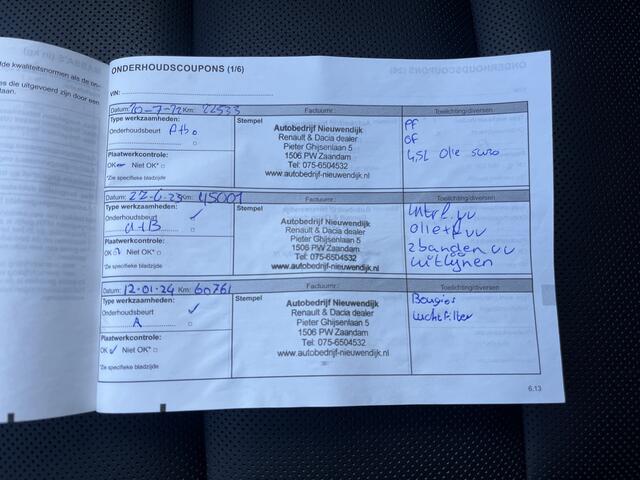 de kwaliteitsnormen als de
es die uitgevoerd zijn door een
ONDERHOUDSCOUPONS (1/6)
VIN:
Datum: 20-7-22 Km: 22533 Factuurnr.: Toelichting/diversen
Type werkzaamheden: Stempel
Onderhoudsbeurt A+b
Autobedrijf Nieuwendijk
Renault & Dacia dealer
Pieter Ghijsenlaan 5
1506 PW Zaandam
Tel: 075-6504532
www.autobedrijf-nieuwendijk.nl
PF
OF
4,5L Olie
Plaatwerkcontrole:
OK Niet OK*
*Zie specifieke bladzijde
Datum: 22-6-23 Km: 45001 Factuurnr.: Toelichting/diversen
Type werkzaamheden: Stempel
Onderhoudsbeurt
A+B
Autobedrijf Nieuwendijk
Renault & Dacia dealer
Pieter Ghijsenlaan 5
1506 PW Zaandam
Tel: 075-6504532
www.autobedrijf-nieuwendijk.nl
olie+f vv
2banden vv
uitlijnen
Plaatwerkcontrole:
OK Niet OK*
*Zie specifieke bladzijde
Datum: 12-01-24 Km: 60761 Factuurnr.: Toelichting/diversen
Type werkzaamheden: Stempel
Onderhoudsbeurt
A
Autobedrijf Nieuwendijk
Renault & Dacia dealer
Pieter Ghijsenlaan 5
1506 PW Zaandam
Tel: 075-6504532
www.autobedrijf-nieuwendijk.nl
Bougies
Luchtfilter
Plaatwerkcontrole:
OK Niet OK*
*Zie specifieke bladzijde
6.13